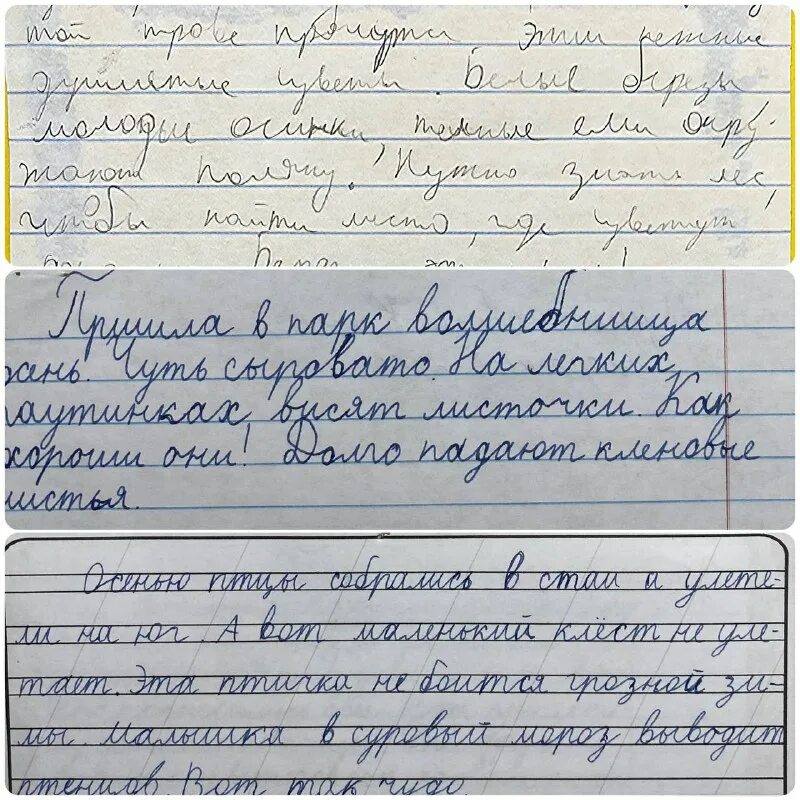 той траве прячутся эти нежные
душистые цветы. Белые березы
молодые осинки, темные ели окру-
жают поляну. Нужно знать лес,
чтобы найти место, где цветут
Пришла в парк волшебнишца
рань. Чуть сыровато. На легких
паутинках, висят листочки. Как
хороши они! Долго падают кленовые
листья.
Осенью птцы собрались в стаи а улете-
ли на юг. А вот маленький клёст не уле-
тает. Эта птичка не боится грозной зи-
мы. Малышка в суровый мороз выводит
птенцов. Вот так чудо.